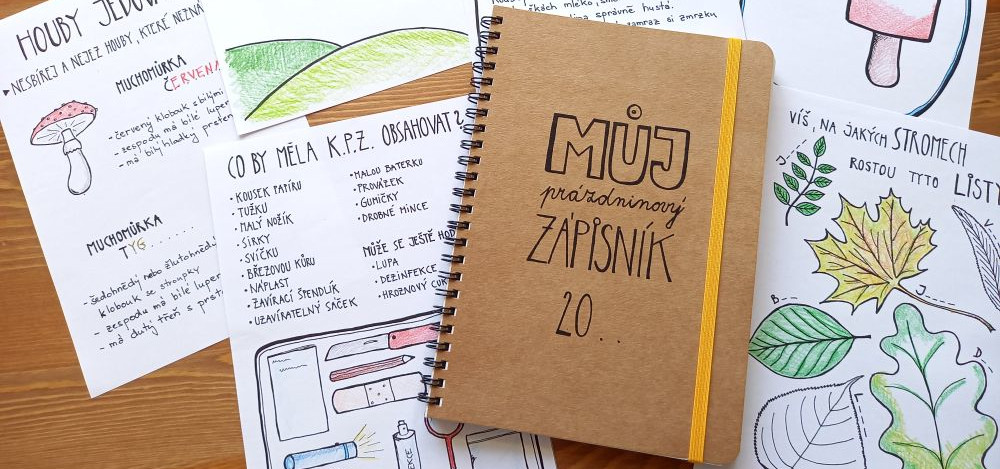 HOUBY
NESBÍREJ A NEJEZ HOUBY, KTERÉ
MUCHOMŮRKA
ČERVENÁ
- červený klobouk s bílými
- zespodu má bílé
- má bílý hladký
MUCHOMŮRKA
TYG........
- šedohnědý nebo žlutohnědý
klobouk se strupky
- zespodu má bílé
- má dutý třeň s
CO BY MĚLA K.P.Z. OBSAHOVAT?
• KOUSEK PAPÍRU
• TUŽKU
• MALÝ NOŽÍK
• SIRKY
• SVÍČKU
• BŘEZOVOU KŮRU
• NÁPLAST
• ZAVÍRACÍ ŠPENDLÍK
• UZAVÍRATELNÝ SÁČEK
• MALOU BATERKU
• PROVÁZEK
• GUMIČKY
• DROBNÉ MINCE
MŮŽE SE JEŠTĚ
• LUPA
• DEZINFEKCE
• HROZNOVÝ
mléko,
správně hustá.
zamraz si zmrzku
MŮJ
prázdninový
ZÁPISNÍK
20..
VÍŠ, NA JAKÝCH STROMECH
ROSTOU TYTO LISTY
J
B
J
D
L